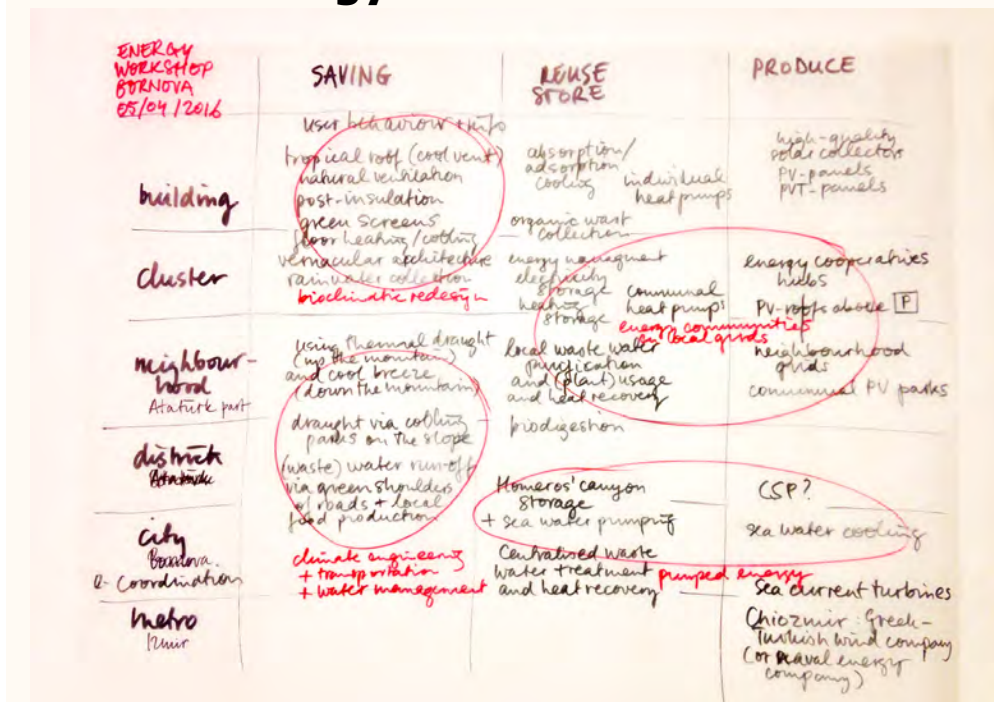 gy
ENERGY
WORKSHOP
BORNOVA
05/04/2016
SAVING
REUSE
STORE
PRODUCE
building
user behaviour + info
tropical roof (cool vent)
natural ventilation
post-insulation
green screens
floor heating/cooling
absorption/
adsorption
cooling
individual
heat pumps
organic wast
collection
high-quality
solar collectors
PV-panels
PVT-panels
cluster
vernacular architecture
rainwater collection
bioclimatic redesign
energy managment
electricity
storage
heating
storage
communal
heat pumps
energy communities
on local grids
energy cooperatives
hubs
PV-roofs above P
neighbour-
hood
Atatürk part
using thermal draught
(up the mountain)
and cool breeze
(down the mountain)
draught via cooling
parks on the slope
local waste water
purification
and (plant) usage
and heat recovery
biodigestion
neighbourhood
grids
communal PV parks
district
(waste) water run-off
via green shoulders
of roads + local
food production
Homeros' canyon
storage
+ sea water pumping
CSP?
sea water cooling
city
Bornova
e-Coordination
climate engineering
+ transportation
+ water management
Centralised waste
water treatment
and heat recovery
pumped energy
Sea current turbines
metro
Izmir
Chiozmir: Greek-
Turkish wind company
(or naval energy
company)